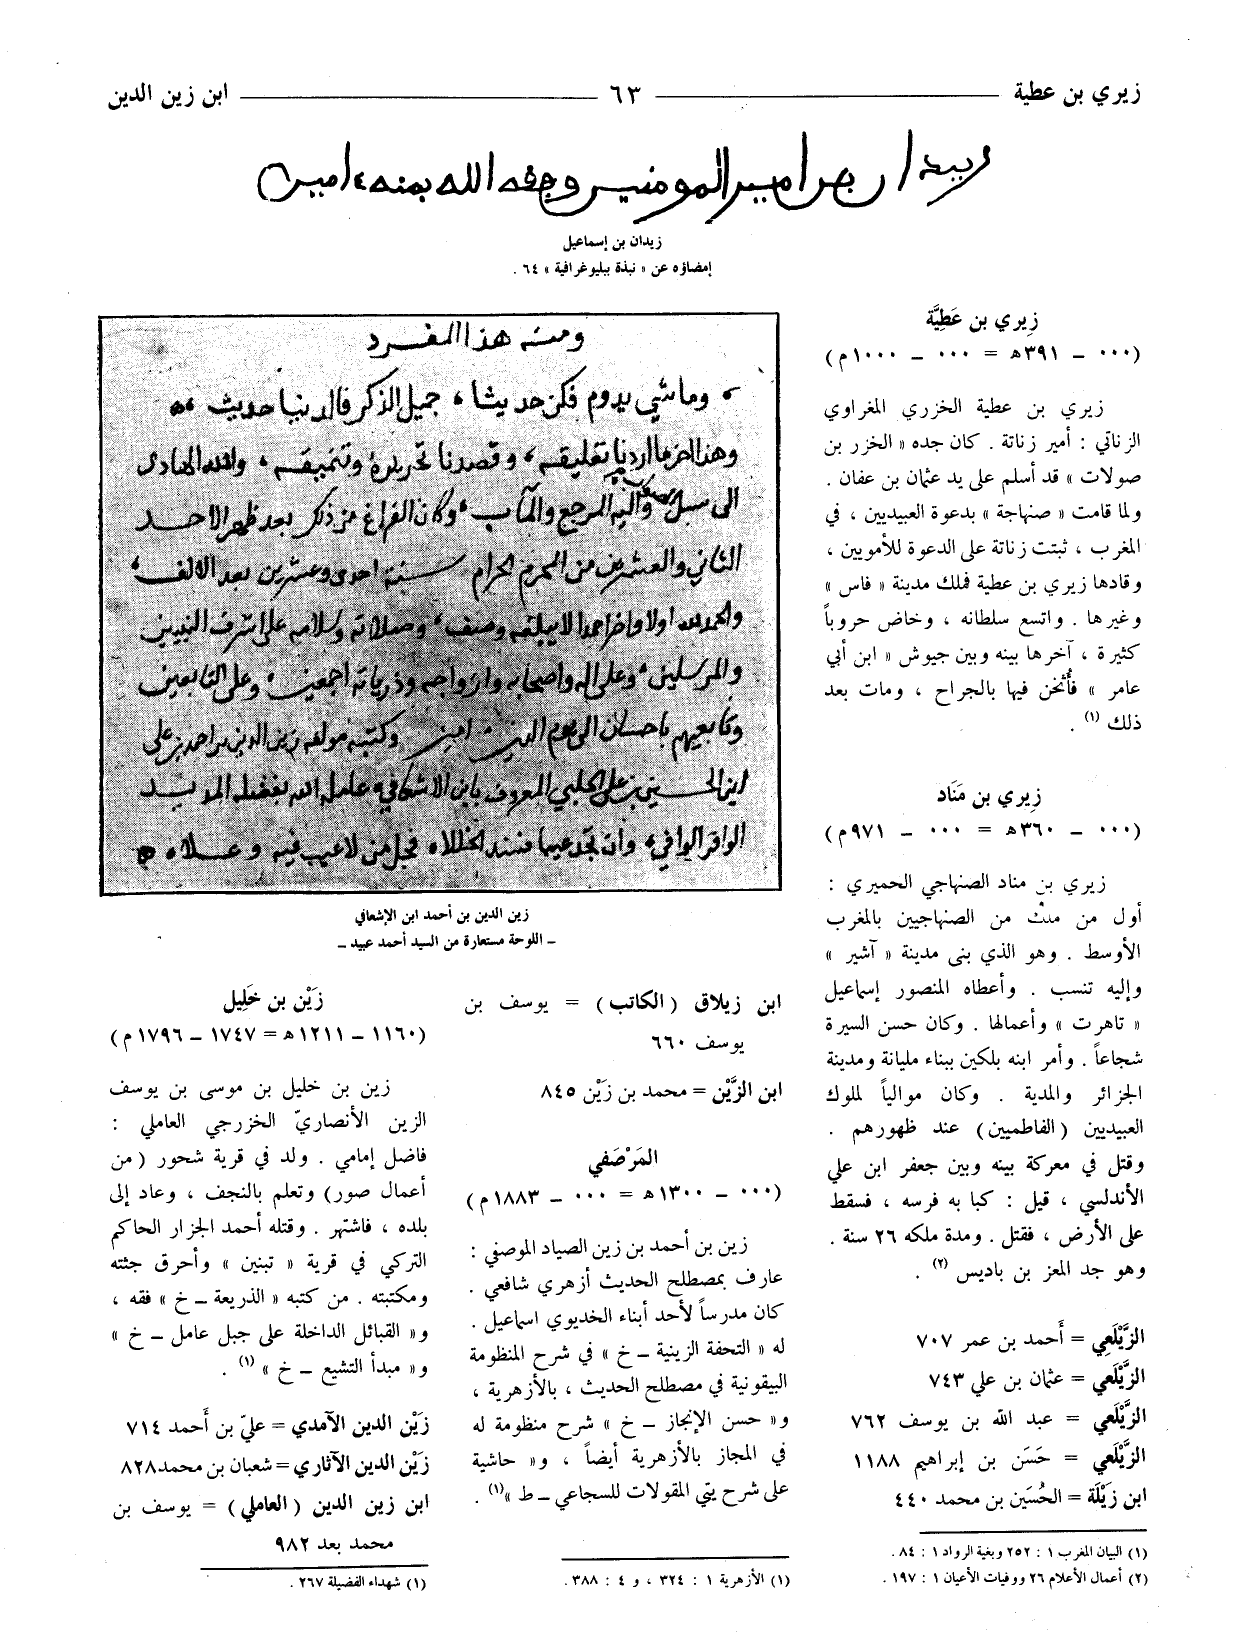 زيري بن عطية ــــ ٦٣ ــــ ابن زين الدين
زيدان بن امير المومنين وفقه الله بمنه ءامين
زيدان بن إسماعيل
إمضاؤه عن « نبذة ببليوغرافية » ٦٤ .
زِيري بن عَطِيَّة
(٠٠٠ – ٣٩١ه‍ = ٠٠٠ – ١٠٠٠م)
زيري بن عطية الخزري المغراوي
الزناتي : أمير زناتة . كان جده « الخزر بن
صولات » قد أسلم على يد عثمان بن عفان .
ولما قامت « صنهاجة » بدعوة العبيديين ، في
المغرب ، ثبتت زناتة على الدعوة للأمويين ،
وقادها زيري بن عطية فملك مدينة « فاس »
وغيرها . واتسع سلطانه ، وخاض حروباً
كثيرة ، آخرها بينه وبين جيوش « ابن أبي
عامر » فأُثخن فيها بالجراح ، ومات بعد
ذلك (١) .
زِيري بن مَنَاد
(٠٠٠ – ٣٦٠ه‍ = ٠٠٠ – ٩٧١م)
زيري بن مناد الصنهاجي الحميري :
أول من ملك من الصنهاجيين بالمغرب
الأوسط . وهو الذي بنى مدينة « آشير »
وإليه تنسب . وأعطاه المنصور إسماعيل
« تاهرت » وأعمالها . وكان حسن السيرة
شجاعاً . وأمر ابنه بلكين ببناء مليانة ومدينة
الجزائر والمدية . وكان موالياً لملوك
العبيديين (الفاطميين) عند ظهورهم .
وقتل في معركة بينه وبين جعفر ابن علي
الأندلسي ، قيل : كبا به فرسه ، فسقط
على الأرض ، فقتل . ومدة ملكه ٢٦ سنة .
وهو جد المعز بن باديس (٢) .
الزَّيْلَعي = أَحمد بن عمر ٧٠٧
الزَّيْلَعي = عثمان بن علي ٧٤٣
الزَّيْلَعي = عبد الله بن يوسف ٧٦٢
الزَّيْلَعي = حَسَن بن إبراهيم ١١٨٨
ابن زَيْلَة = الحُسَين بن محمد ٤٤٠
(١) البيان المغرب ١ : ٢٥٢ وبغية الرواد ١ : ٨٤ .
(٢) أعمال الأعلام ٢٦ ووفيات الأعيان ١ : ١٩٧ .
ومنه هذا المفرد
وما شي يدوم فكن حديثا ، جميل الذكر فالدنيا حديث
وهذا اخر ما اردنا تعليقه ، وقصدنا تحريره وتنميقه ، والله الهادى
الى سبيل واليه المرجع والمآب ، وكان الفراغ من ذلك بعد ظهر الاحد
الثاني والعشرين من المحرم الحرام سنة احدى وعشرين بعد الالف ،
والحمد لله اولا واخرا وصلاته وسلامه على اشرف النبيين
والمرسلين ، وعلى اله واصحابه وازواجه وذرياته اجمعين ، وعلى التابعين
وتابعيهم باحسان الى يوم الدين امين وكتبه مولفه زين الدين بن احمد بن علي
ابن الحسين بن علي الحلبي المعروف بابن الاشعافي عامله الله بفضله
الوافر الوافي ، وان تجد عيبا فسد الخللا ، فجل من لا عيب فيه وعلا
زين الدين بن أحمد ابن الإشعافي
– اللوحة مستعارة من السيد أحمد عبيد –
ابن زيلاق (الكاتب) = يوسف بن
يوسف ٦٦٠
ابن الزَّيْن = محمد بن زَيْن ٨٤٥
المَرْصَفي
(٠٠٠ – ١٣٠٠ه‍ = ٠٠٠ – ١٨٨٣م)
زين بن أحمد بن زين الصياد الموصني :
عارف بمصطلح الحديث أزهري شافعي .
كان مدرساً لأحد أبناء الخديوي اسماعيل .
له « التحفة الزينية – خ » في شرح المنظومة
البيقونية في مصطلح الحديث ، بالأزهرية ،
و« حسن الإنجاز – خ » شرح منظومة له
في المجاز بالأزهرية أيضاً ، و« حاشية
على شرح يتي المقولات للسجاعي – ط »(١) .
(١) الأزهرية ١ : ٣٢٤ ، و ٤ : ٣٨٨ .
زَيْن بن خَلِيل
(١١٦٠ – ١٢١١ه‍ = ١٧٤٧ – ١٧٩٦م)
زين بن خليل بن موسى بن يوسف
الزين الأنصاريّ الخزرجي العاملي :
فاضل إمامي . ولد في قرية شحور (من
أعمال صور) وتعلم بالنجف ، وعاد إلى
بلده ، فاشتهر . وقتله أحمد الجزار الحاكم
التركي في قرية « تبنين » وأحرق جثته
ومكتبته . من كتبه « الذريعة – خ » فقه ،
و« القبائل الداخلة على جبل عامل – خ »
و« مبدأ التشيع – خ » (١) .
زَيْن الدين الآمدي = عليّ بن أَحمد ٧١٤
زَيْن الدين الآثاري = شعبان بن محمد ٨٢٨
ابن زين الدين (العاملي) = يوسف بن
محمد بعد ٩٨٢
(١) شهداء الفضيلة ٢٦٧ .